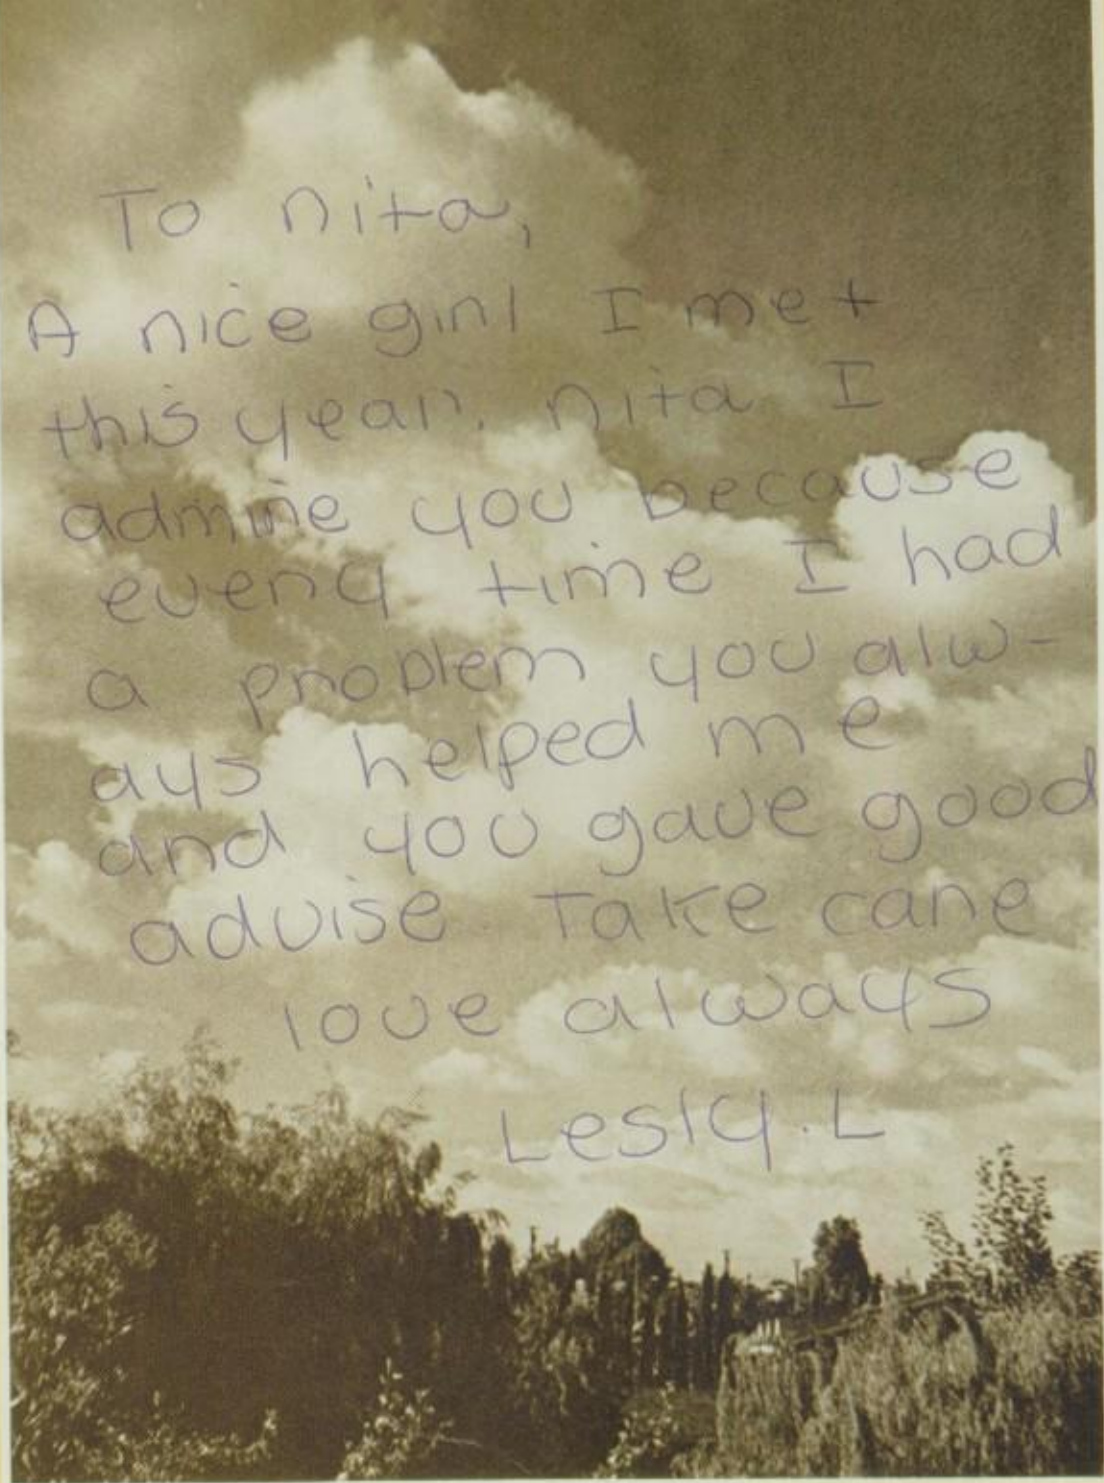 To nita,
A nice girl I met
this year. nita I
admire you because
every time I had
a problem you alw-
ays helped me
and you gave good
advise. Take care
love always
Lesly.L